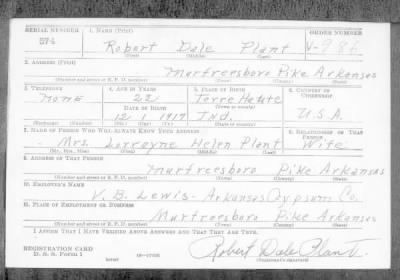 SERIAL NUMBER 1. NAME (Print) ORDER NUMBER
574 Robert Dale Plant V-986
(First) (Middle) (Last)
2. ADDRESS (Print)
Murfreesboro Pike Arkansas
(Number and street or R. F. D. number) (Town) (County) (State)
3. TELEPHONE 4. AGE IN YEARS 5. PLACE OF BIRTH 6. COUNTRY OF CITIZENSHIP
None 22 Terre Haute
DATE OF BIRTH (Town or county)
12 1 1917 IND. U.S.A.
(Exchange) (Number) (Mo.) (Day) (Yr.) (State or country)
7. NAME OF PERSON WHO WILL ALWAYS KNOW YOUR ADDRESS 8. RELATIONSHIP OF THAT PERSON
Mrs. Lorrayne Helen Plant Wife
(Mr., Mrs., Miss) (First) (Middle) (Last)
9. ADDRESS OF THAT PERSON
Murfreesboro Pike Arkansas
(Number and street or R. F. D. number) (Town) (County) (State)
10. EMPLOYER'S NAME
V. B. Lewis - Arkansas Gypsum Co.
11. PLACE OF EMPLOYMENT OR BUSINESS
Murfreesboro Pike Arkansas
(Number and street or R. F. D. number) (Town) (County) (State)
I AFFIRM THAT I HAVE VERIFIED ABOVE ANSWERS AND THAT THEY ARE TRUE.
REGISTRATION CARD
D. S. S. Form 1 Robert Dale Plant
(Registrant's signature)